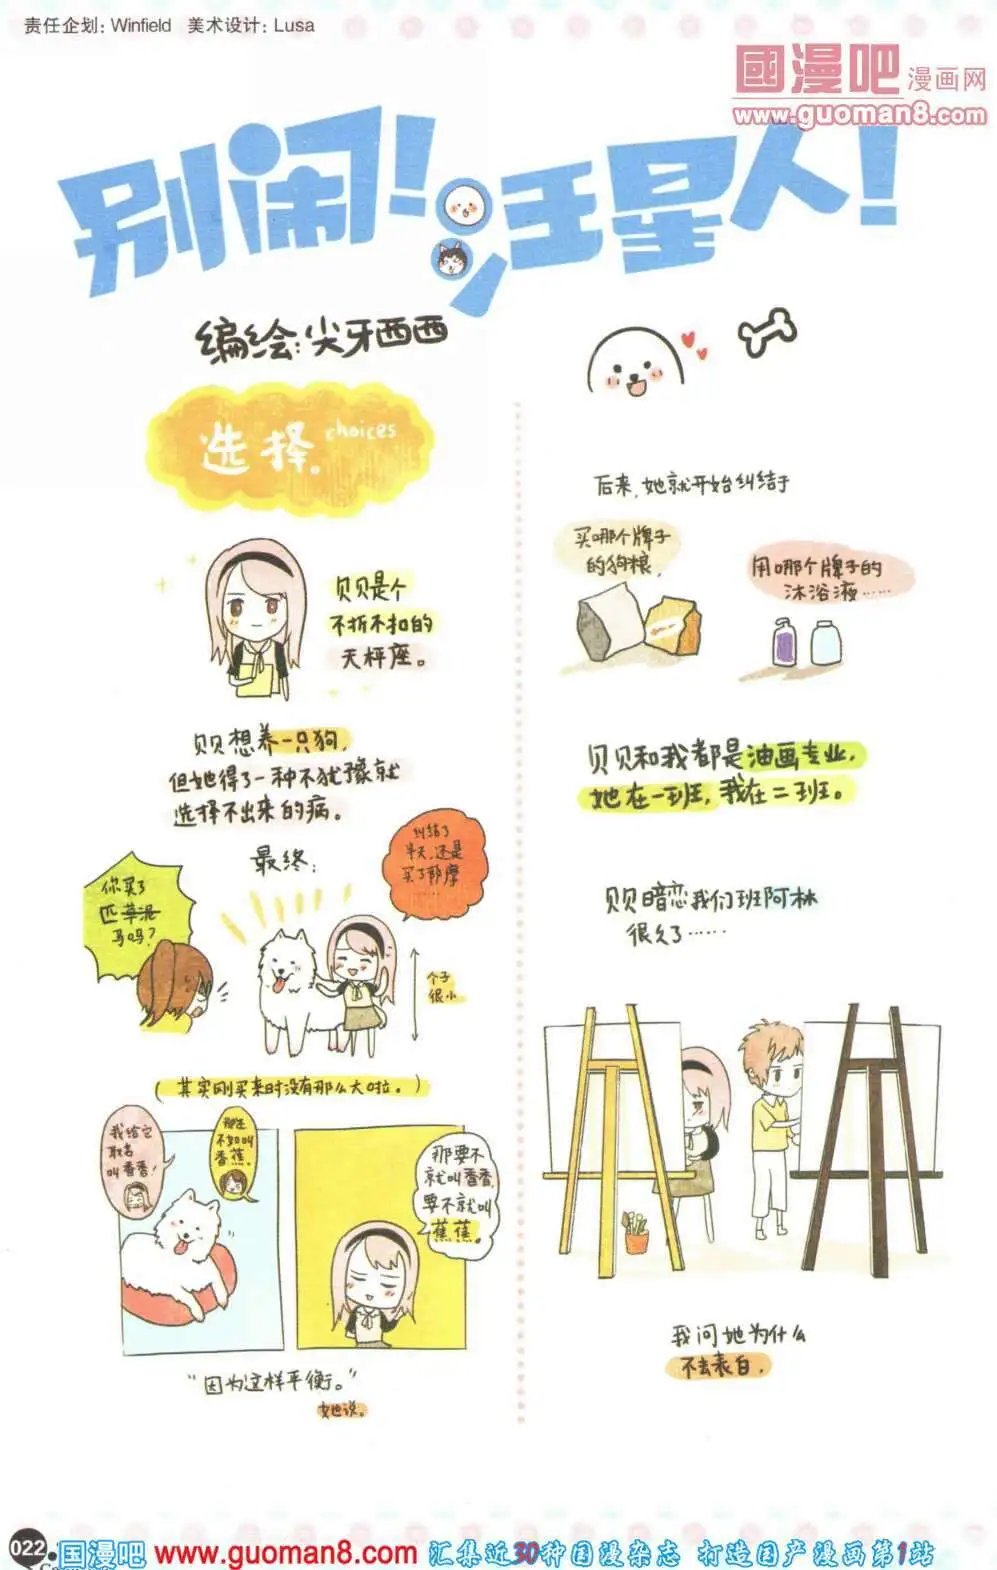 责任企划：Winfield 美术设计：Lusa
國漫吧漫画网
www.guoman8.com
别闹！汪星人！
编绘：尖牙西西
选择。choices
贝贝是个
不折不扣的
天秤座。
贝贝想养一只狗，
但她得了一种不犹豫就
选择不出来的病。
最终：
你买了
匹草泥
马吗？
纠结了
半天，还是
买了耶摩
……
个子
很小
（其实刚买来时没有那么大啦。）
我给它
取名
叫香香！
那还
不如叫
香蕉。
那要不
就叫香香，
要不就叫
蕉蕉。
“因为这样平衡。”
她说。
后来，她就开始纠结于
买哪个牌子
的狗粮，
用哪个牌子的
沐浴液……
贝贝和我都是油画专业，
她在一班，我在二班。
贝贝暗恋我们班阿林
很久了……
我问她为什么
不去表白，
022
国漫吧 www.guoman8.com 汇集近30种国漫杂志 打造国产漫画第1站